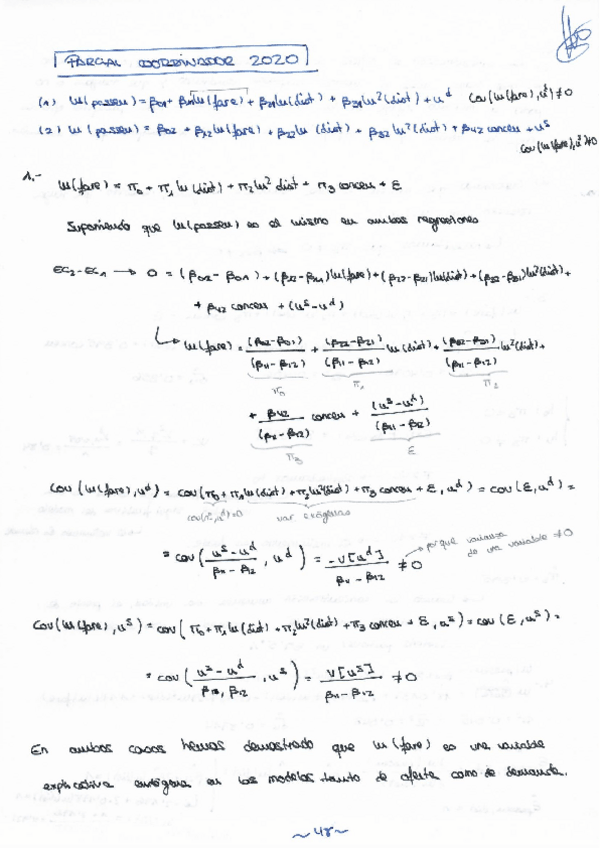 PARCIAL COORDINADOR 2020
(1) ln(passen) = β01 + β11 ln(fare) + β21 ln(dist) + β31 ln²(dist) + u^d   Cov(ln(fare), u^d) ≠ 0
(2) ln(passen) = β02 + β12 ln(fare) + β22 ln(dist) + β32 ln²(dist) + β42 concen + u^s
Cov(ln(fare), u^s) ≠ 0
1.- ln(fare) = π0 + π1 ln(dist) + π2 ln² dist + π3 concen + ε
Suponiendo que ln(passen) es el mismo en ambas regresiones
EC2 - EC1 → 0 = (β02 - β01) + (β12 - β11) ln(fare) + (β22 - β21) ln(dist) + (β32 - β31) ln²(dist) +
+ β42 concen + (u^s - u^d)
ln(fare) = (β02 - β01)/(β11 - β12) + (β22 - β21)/(β11 - β12) ln(dist) + (β32 - β31)/(β11 - β12) ln²(dist) +
π0 π1 π2
+ β42/(β11 - β12) concen + (u^s - u^d)/(β11 - β12)
π3 ε
Cov(ln(fare), u^d) = cov(π0 + π1 ln(dist) + π2 ln²(dist) + π3 concen + ε, u^d) = cov(ε, u^d) =
var exógenas
= cov((u^s - u^d)/(β11 - β12), u^d) = -V[u^d]/(β11 - β12) ≠ 0 porque varianza
de una variable ≠ 0
Cov(ln(fare), u^s) = cov(π0 + π1 ln(dist) + π2 ln²(dist) + π3 concen + ε, u^s) = cov(ε, u^s) =
= cov((u^s - u^d)/(β11, β12), u^s) = V[u^s]/(β11 - β12) ≠ 0
En ambos casos hemos demostrado que ln(fare) es una variable
explicativa endógena en los modelos tanto de oferta como de demanda.
~48~